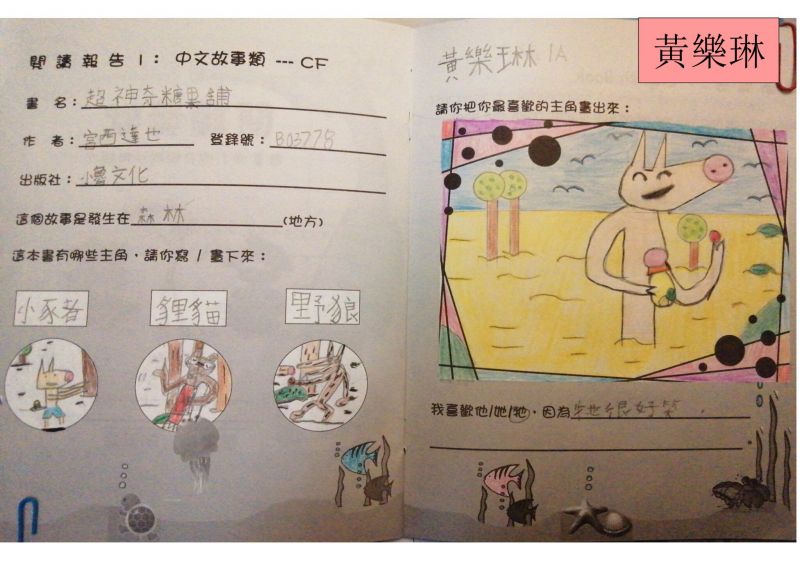 閱讀報告1：中文故事類 --- CF
書 名：超神奇糖果舖
作 者：宮西達也 登錄號：B03778
出版社：小魯文化
這個故事是發生在森林(地方)
這本書有哪些主角，請你寫/畫下來：
小豕者 貍貓 野狼
黃樂琳 1A
黃樂琳
請你把你最喜歡的主角畫出來：
我喜歡他/她/牠，因為牠很好笑．